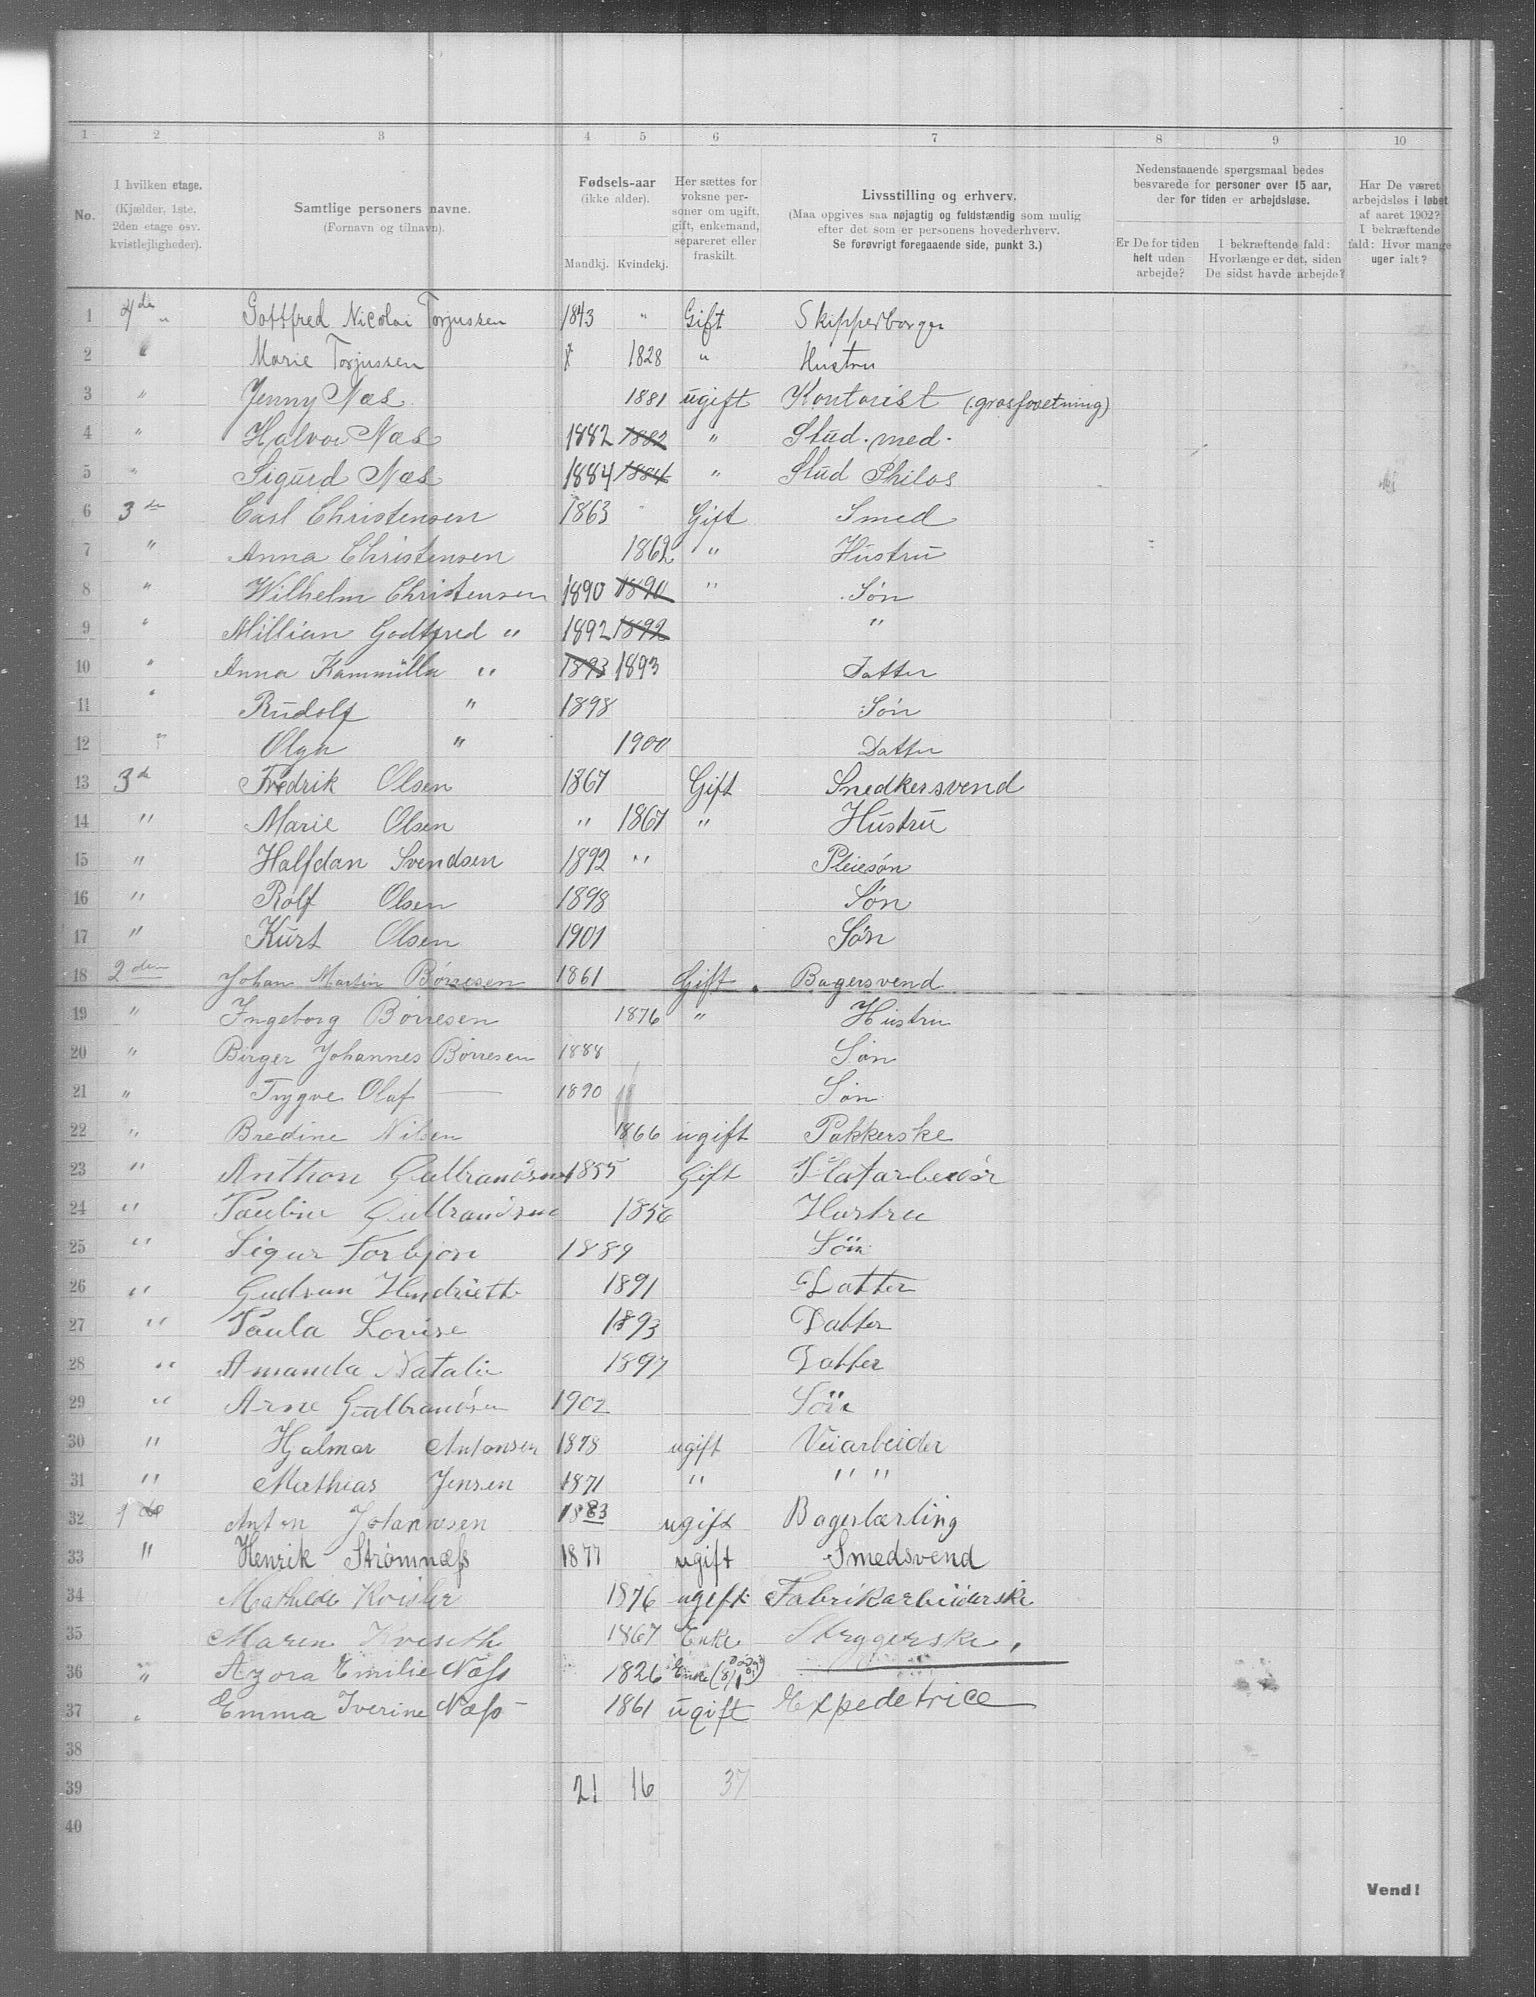 1 2 3 4 5 6 7 8 9 10
No. I hvilken etage. (Kjælder, 1ste, 2den etage osv. kvistlejligheder). Samtlige personers navne. (Fornavn og tilnavn). Fødsels-aar (ikke alder). Mandkj. Kvindekj. Her sættes for voksne personer om ugift, gift, enkemand, separeret eller fraskilt. Livsstilling og erhverv. (Maa opgives saa nøjagtig og fuldstændig som mulig efter det som er personens hovederhverv. Se forøvrigt foregaaende side, punkt 3.) Nedenstaaende spørgsmaal bedes besvarede for personer over 15 aar, der for tiden er arbejdsløse. Er De for tiden helt uden arbejde? I bekræftende fald: Hvorlænge er det, siden De sidst havde arbejde? Har De været arbejdsløs i løbet af aaret 1902? I bekræftende fald: Hvor mange uger ialt?
1 4de " Gottfred Nicolai Torjussen 1843 " Gift Skipperborger
2 " Marie Torjussen 1828 " Hustru
3 " Jenny Næs 1881 ugift Kontorist (.grosforretning)
4 " Halvor Næs 1882 1882 " Stud. med.
5 " Sigurd Næs 1884 1884 " Stud Philos
6 3de Carl Christensen 1863 " Gift Smed
7 " Anna Christensen 1862 " Hustru
8 " Wilhelm Christensen 1890 1890 " Søn
9 " Millian Godtfred " 1892 1892 "
10 " Anna Kammilla " 1893 1893 Datter
11 " Rudolf " 1898 Søn
12 " Olga " 1900 Datter
13 3d Fredrik Olsen 1867 Gift Snedkersvend
14 " Marie Olsen " 1867 " Hustru
15 " Halfdan Svendsen 1892 " Pleiesøn
16 " Rolf Olsen 1898 Søn
17 " Kurt Olsen 1901 Søn
18 2den Johan Martin Børresen 1861 Gift. Bagersvend
19 " Ingeborg Børresen 1876 " Hustru
20 " Birger Johannes Børresen 1888 Søn
21 " Trygve Olaf — 1890 Søn
22 " Bredine Nilsen 1866 ugift Pakkerske
23 " Anthon Gulbrandsen 1855 Gift
24 " Pauline Gulbrandsen 1856 Hustru
25 " Sigur Torbjørn 1889 Søn
26 " Gudrun Hendriette 1891 Datter
27 " Paula Lovise 1893 Datter
28 " Amanda Natalie 1897 Datter
29 " Arne Gulbrandsen 1902 Søn
30 " Hjalmar Antonsen 1878 ugift Veiarbeider
31 " Mathias Jensen 1871 " " "
32 1ste Anton Johannesen 1883 ugift Bagerlærling
33 " Henrik Strømnæss 1877 ugift Smedsvend
34 Mathilde 1876 ugift Fabrikarbeiderske
35 Maren Kveseth 1867 Enke Strygerske.
36 " Azora Emilie Næss 1826 Enke
37 " Emma Iverine Næss 1861 ugift Expedetrice
38
39 21 16 37
40
Vend!